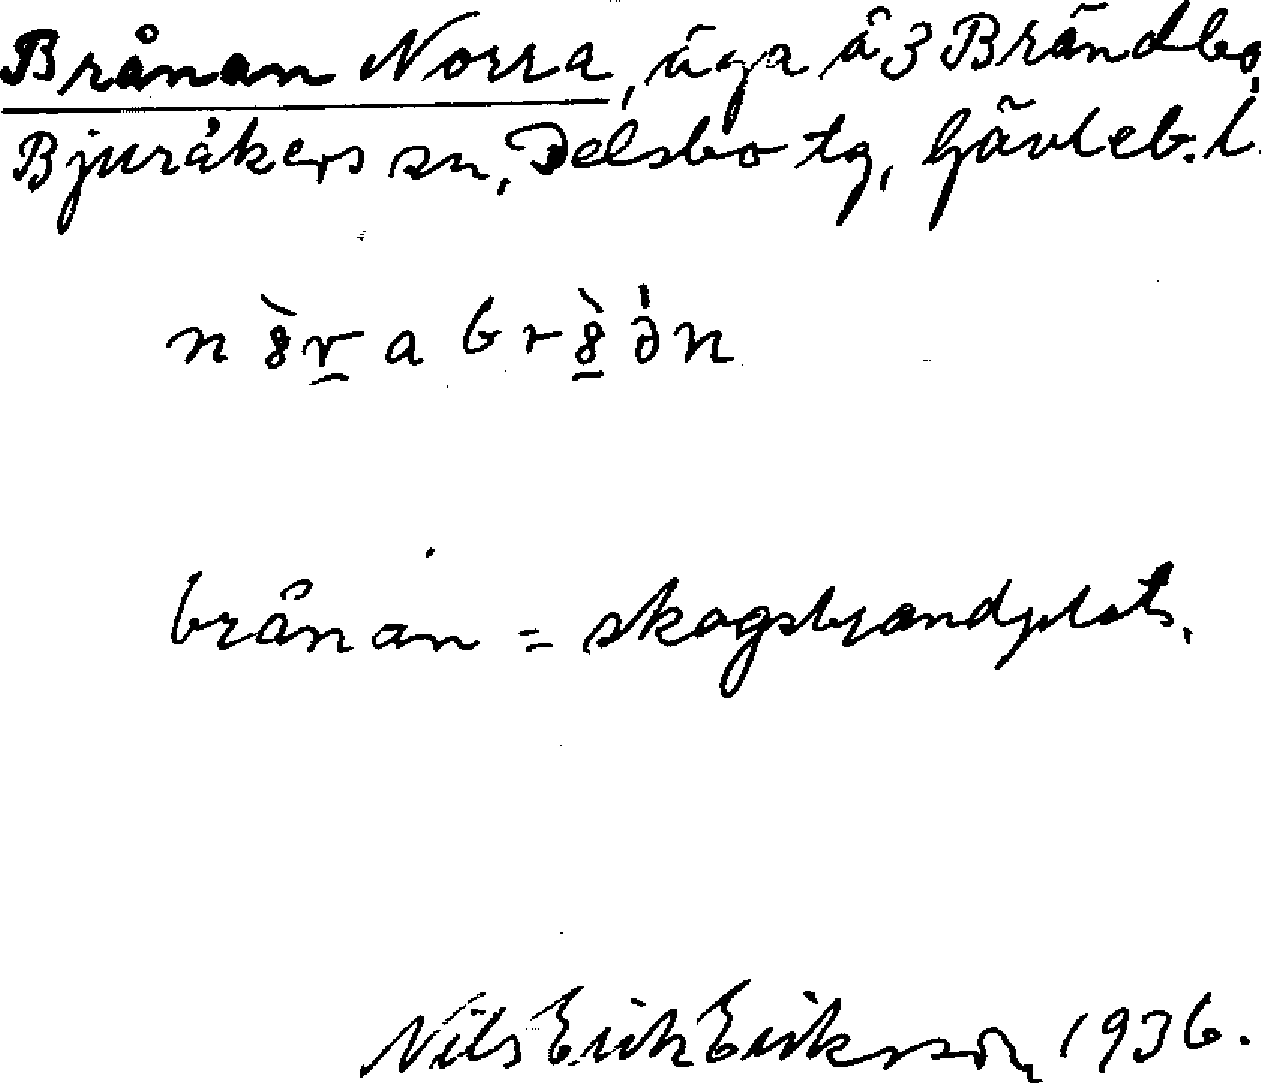 Brånan Norra, äga å 3 Brändbo,
Bjuråkers sn, Delsbo tg, Gävleb. l.
brånan = skogsbrandplats.
Nils Erik Eriksson 1936.